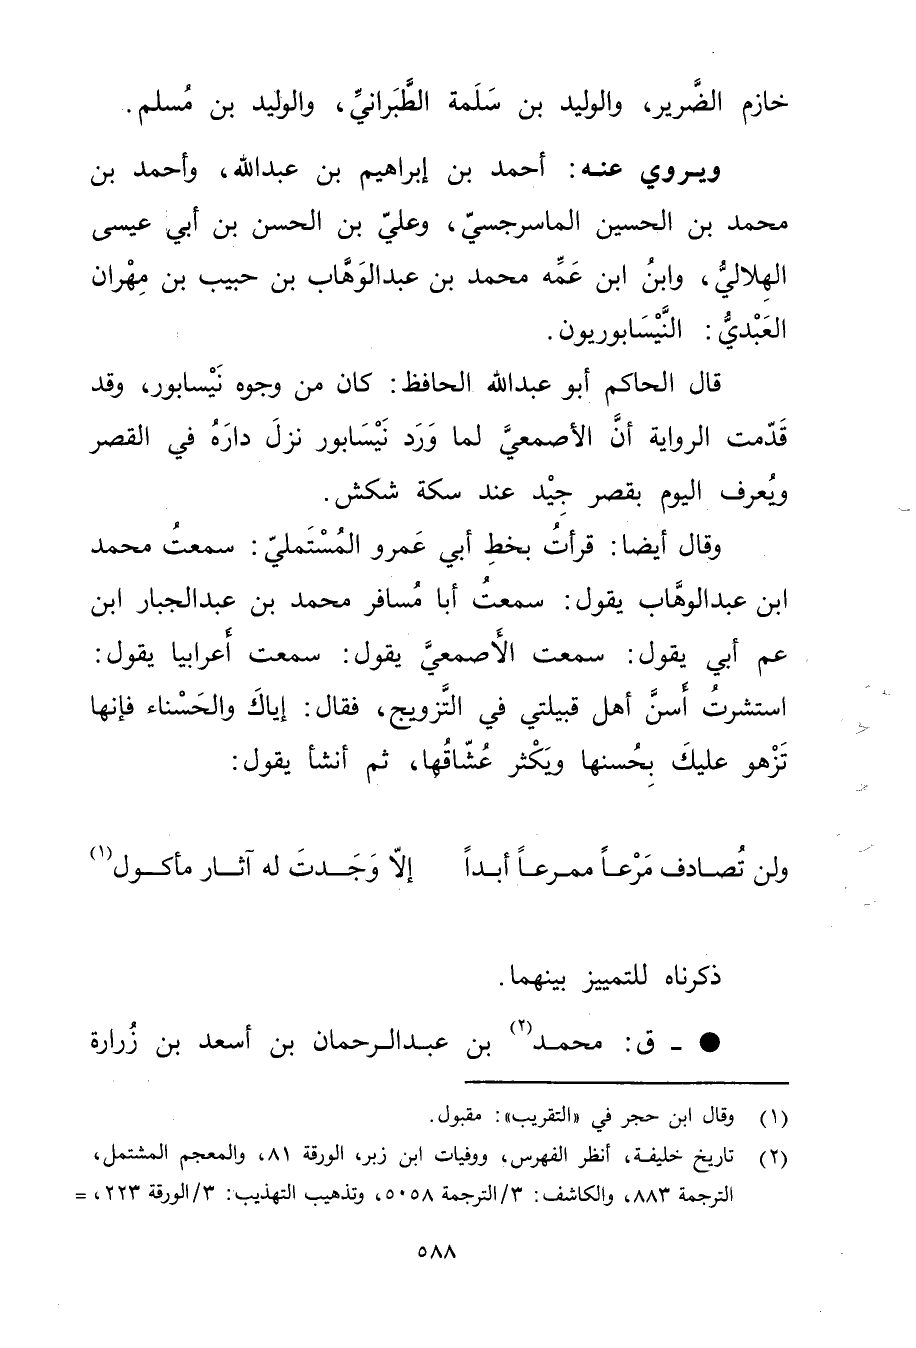 خازم الضَّرير، والوليد بن سَلَمة الطَّبَرانيِّ، والوليد بن مُسلم.
ويـروي عنـه: أحمد بن إبراهيم بن عبدالله، وأحمد بن
محمد بن الحسين الماسرجسيّ، وعليّ بن الحسن بن أبي عيسى
الهِلاليُّ، وابنُ ابن عَمِّه محمد بن عبدالوَهَّاب بن حبيب بن مِهْران
العَبْديُّ: النَّيْسَابوريون.
قال الحاكم أبو عبدالله الحافظ: كان من وجوه نَيْسابور، وقد
قَدّمت الرواية أنَّ الأصمعيَّ لما وَرَد نَيْسَابور نزلَ دارَهُ في القصر
ويُعرف اليوم بقصر جِيْد عند سكة شكش.
وقال أيضا: قرأتُ بخطِ أبي عَمرو المُسْتَمليّ: سمعتُ محمد
ابن عبدالوهَّاب يقول: سمعتُ أبا مُسافر محمد بن عبدالجبار ابن
عم أبي يقول: سمعت الأَصمعيَّ يقول: سمعت أَعرابيا يقول:
استشرتُ أَسنَّ أهل قبيلتي في التَّزويج، فقال: إياكَ والحَسْناء فإنها
تَزْهو عليكَ بِحُسنها ويَكْثر عُشّاقُها، ثم أنشأ يقول:
ولن تُصـادف مَرْعـاً ممـرعـاً أبـداً إلاّ وَجَـدتَ له آثـار مأكـول(١)
ذكرناه للتمييز بينهما.
● ـ ق: محمـد(٢) بن عبـدالـرحمان بن أسعد بن زُرارة
(١) وقال ابن حجر في «التقريب»: مقبول.
(٢) تاريخ خليفـة، أنظر الفهرس، ووفيات ابن زبر، الورقة ٨١، والمعجم المشتمل،
الترجمة ٨٨٣، والكاشف: ٣/الترجمة ٥٠٥٨، وتذهيب التهذيب: ٣/الورقة ٢٢٣، =
٥٨٨